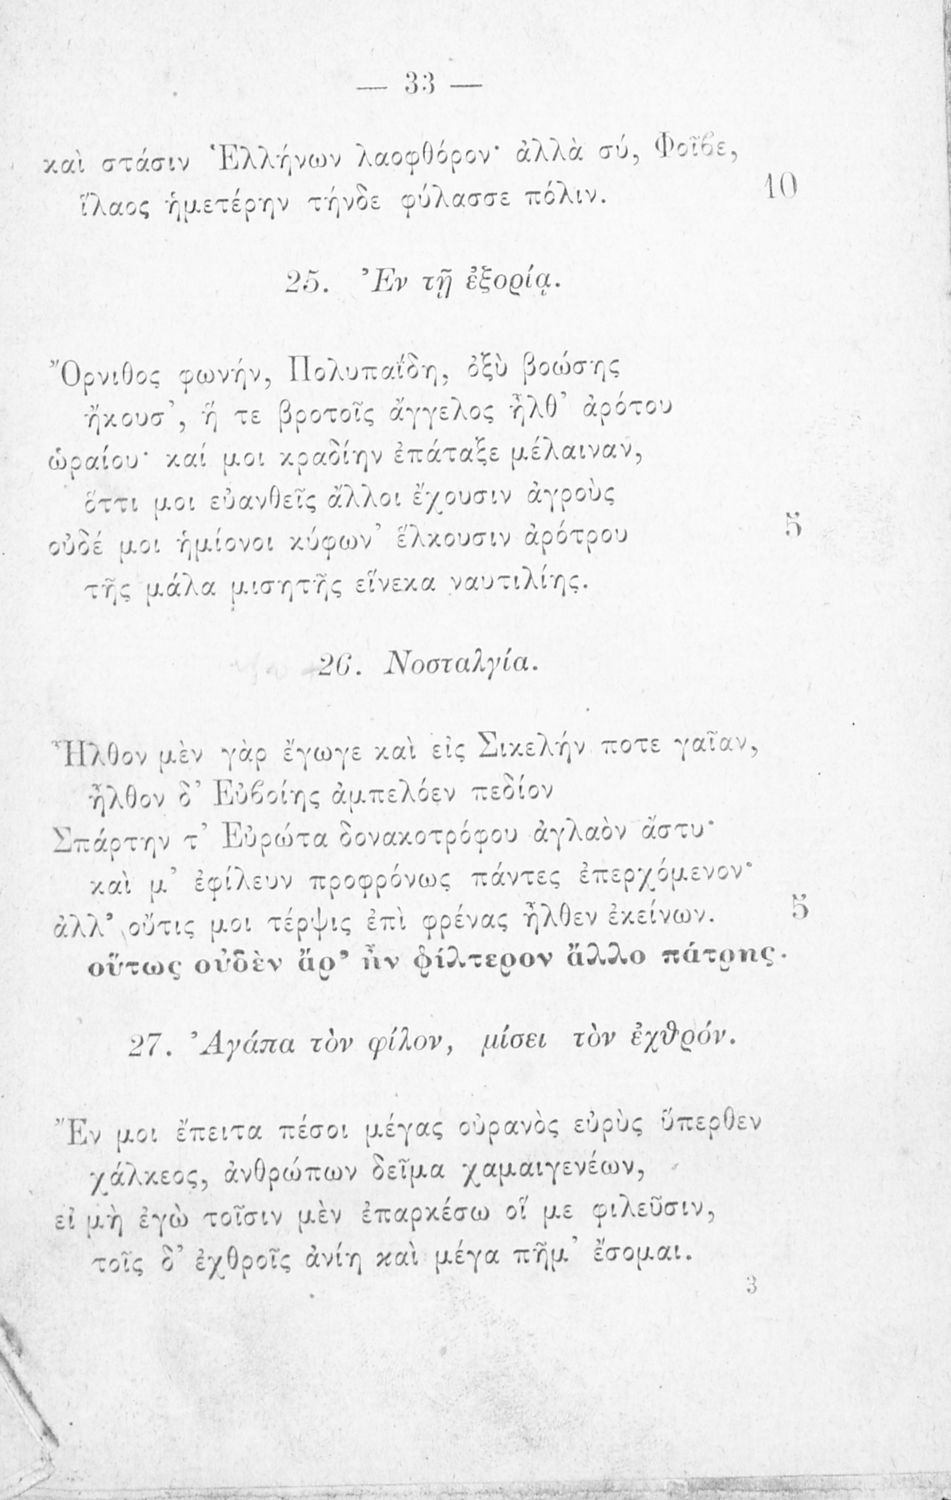 — 33 —
καὶ στάσιν Ἑλλήνων λαοφθόρον· ἀλλὰ σύ, Φοῖϐε,
ἵλαος ἡμετέρην τήνδε φύλασσε πόλιν. 10
25. Ἐν τῇ ἐξορίᾳ.
Ὄρνιθος φωνήν, Πολυπαΐδη, ὀξὺ βοώσης
ἤκουσ’, ἥ τε βροτοῖς ἄγγελος ἦλθ’ ἀρότου
ὡραίου· καί μοι κραδίην ἐπάταξε μέλαιναν,
ὅττι μοι εὐανθεῖς ἄλλοι ἔχουσιν ἀγροὺς
οὐδέ μοι ἡμίονοι κύφων’ ἕλκουσιν ἀρότρου 5
τῆς μάλα μισητῆς εἵνεκα ναυτιλίης.
26. Νοσταλγία.
Ἦλθον μὲν γὰρ ἔγωγε καὶ εἰς Σικελήν ποτε γαῖαν,
ἦλθον δ’ Εὐϐοίης ἀμπελόεν πεδίον
Σπάρτην τ’ Εὐρώτα δονακοτρόφου ἀγλαὸν ἄστυ·
καὶ μ’ ἐφίλευν προφρόνως πάντες ἐπερχόμενον·
ἀλλ’ οὔτις μοι τέρψις ἐπὶ φρένας ἦλθεν ἐκείνων. 5
οὕτως οὐδὲν ἄρ’ ἦν φίλτερον ἄλλο πάτρης.
27. Ἀγάπα τὸν φίλον, μίσει τὸν ἐχθρόν.
Ἔν μοι ἔπειτα πέσοι μέγας οὐρανὸς εὐρὺς ὕπερθεν
χάλκεος, ἀνθρώπων δεῖμα χαμαιγενέων,
εἰ μὴ ἐγὼ τοῖσιν μὲν ἐπαρκέσω οἵ με φιλεῦσιν,
τοῖς δ’ ἐχθροῖς ἀνίη καὶ μέγα πῆμ’ ἔσομαι.
3